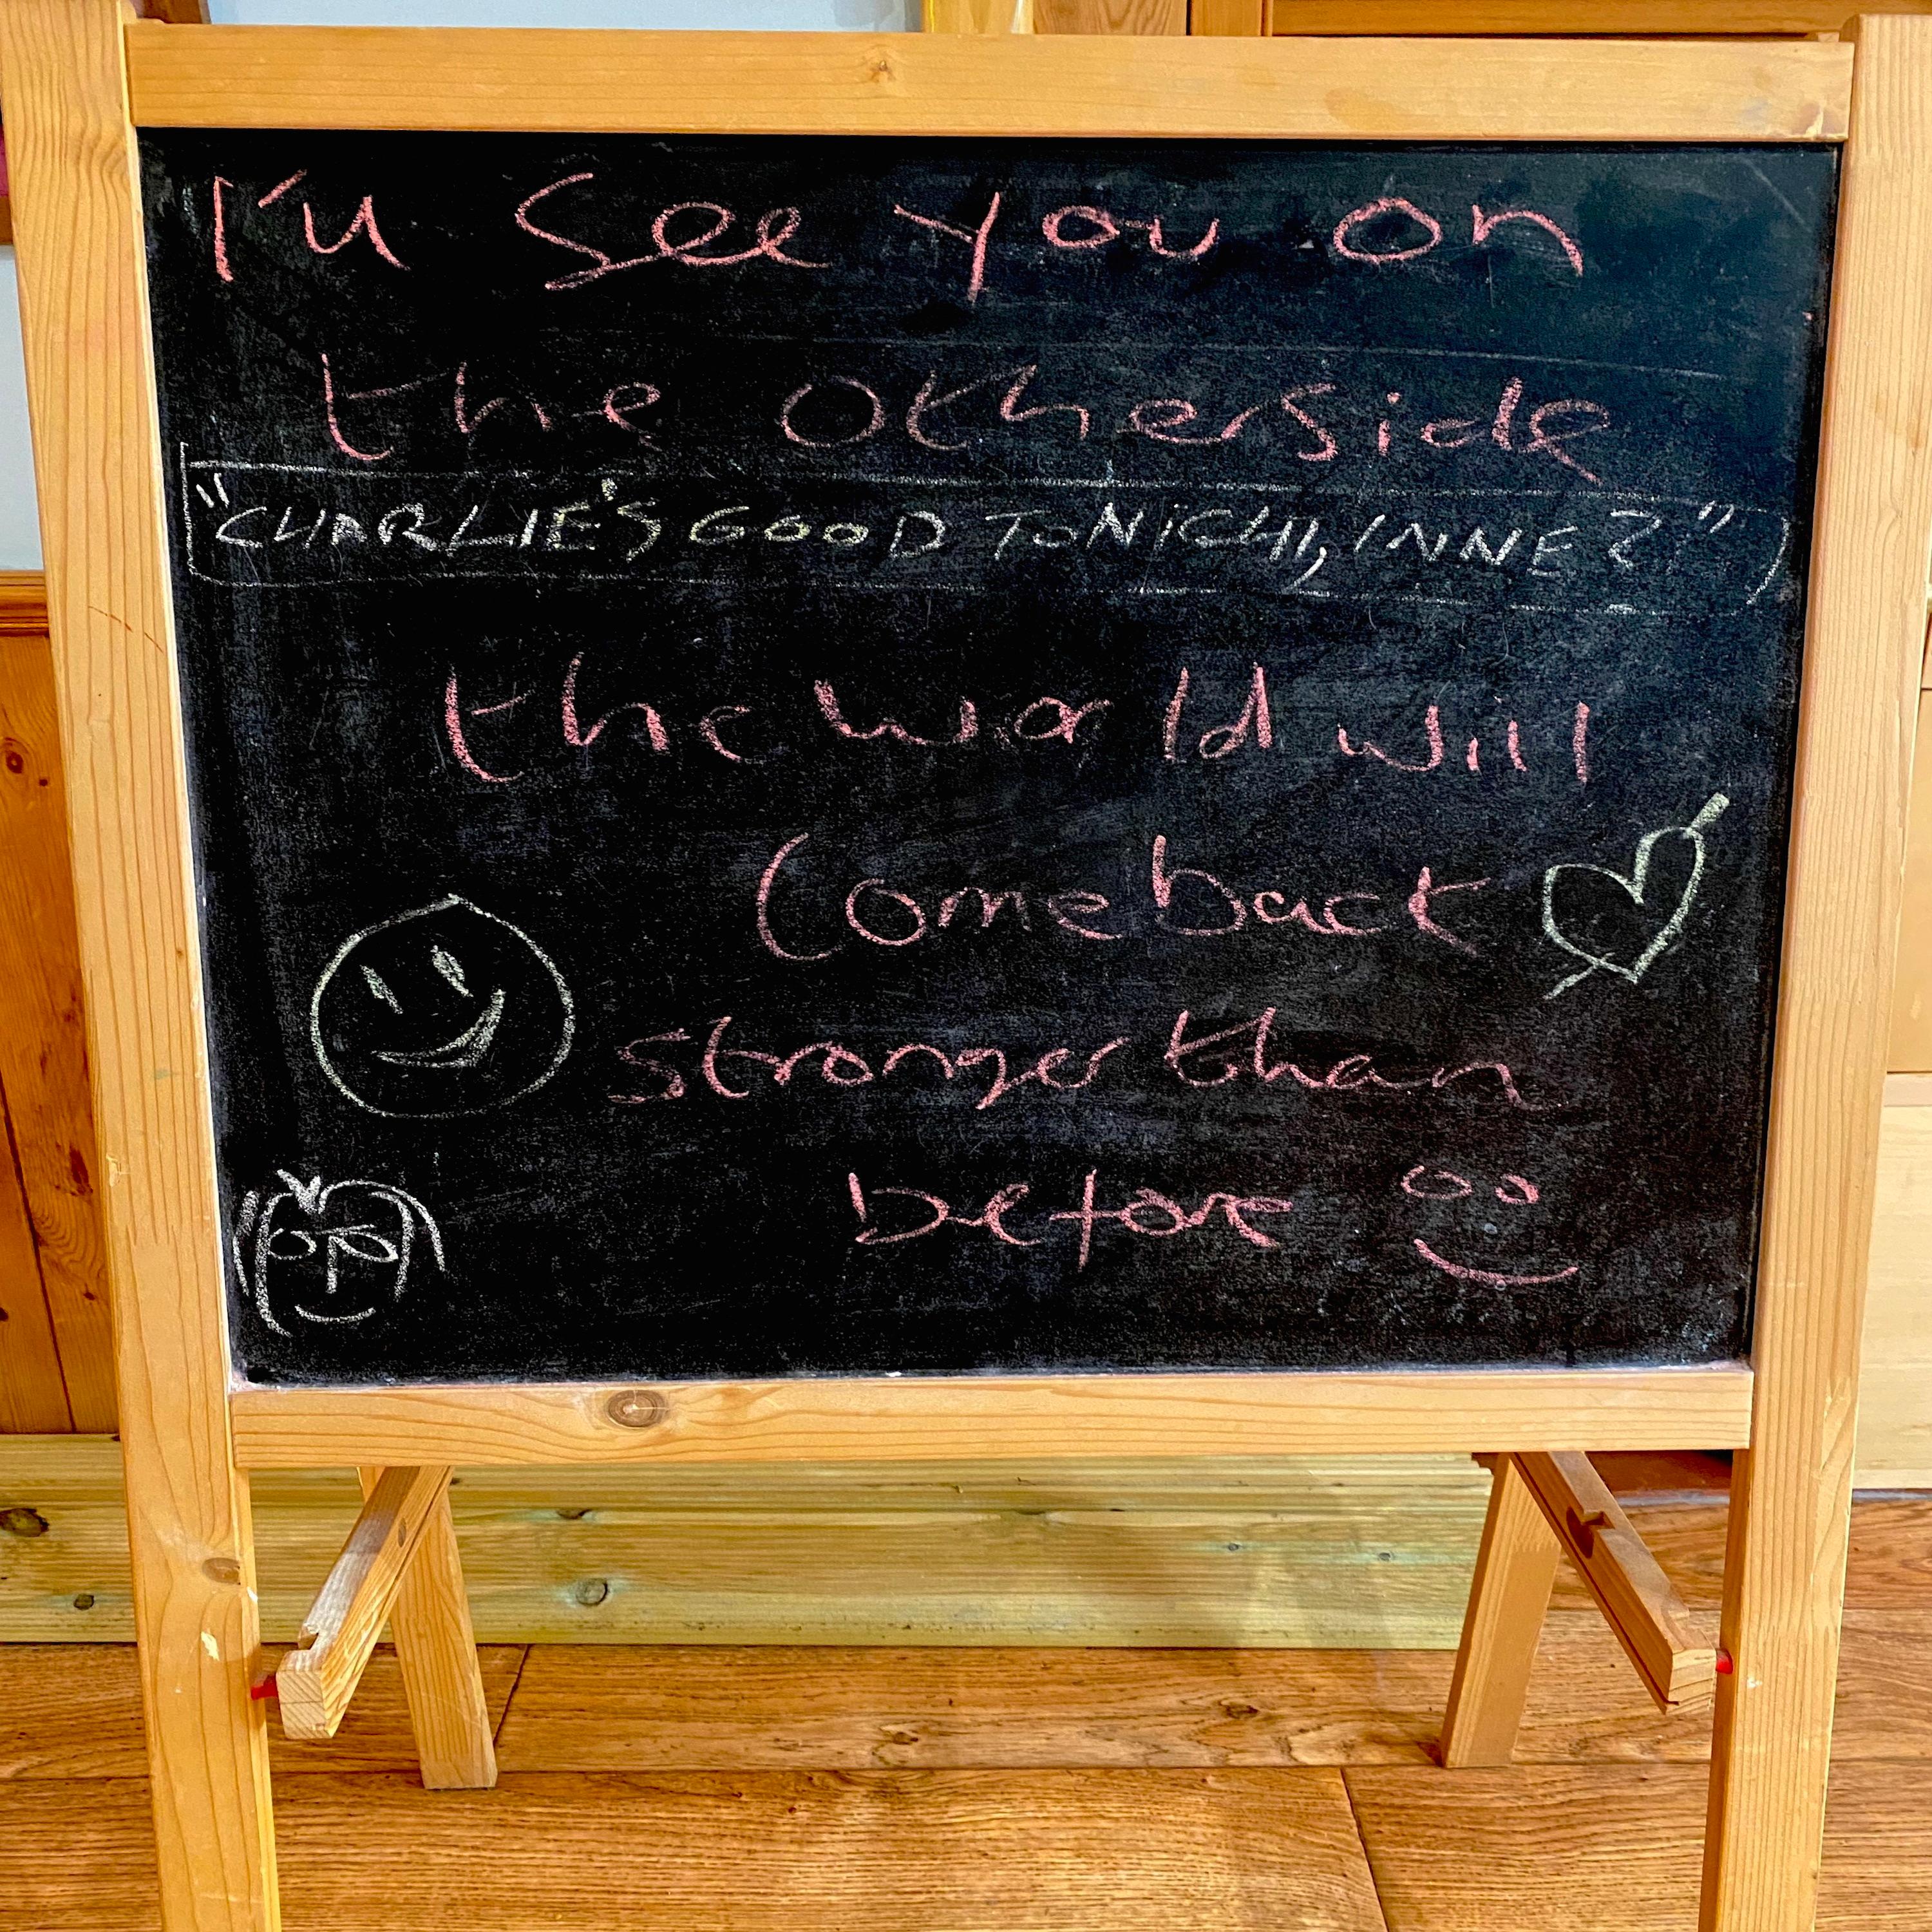 I'll see you on
the otherside
"CHARLIE'S GOOD TONIGHT, INNE?"
the world will
Comeback
stronger than
before